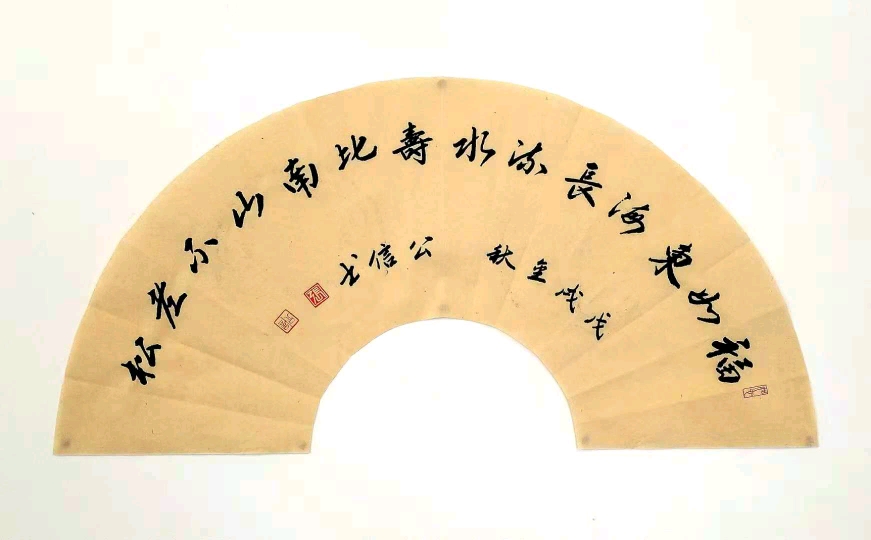 福如東海長流水壽比南山不老松
戊戌金秋 公信書